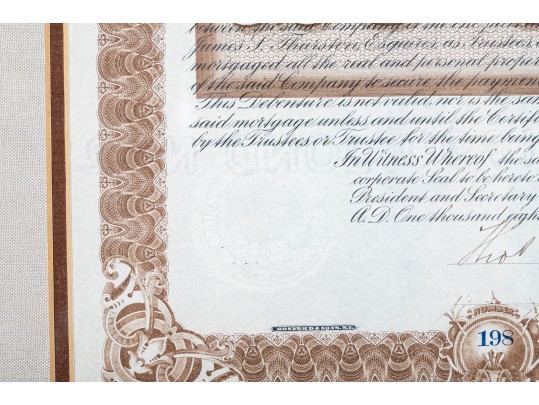 James S. Thurston, Esquires, as Trustees,
mortgaged all the real and personal proper
of the said Company to secure the paymen
This Debenture is not valid, nor is the sa
said mortgage unless and until the Certif
by the Trustees or Trustee for the time being
In Witness Whereof the sa
corporate Seal to be hereto
President and Secretary
A.D. One thousand eigh
HOSFORD & SONS, N.Y.
NUMBER
198